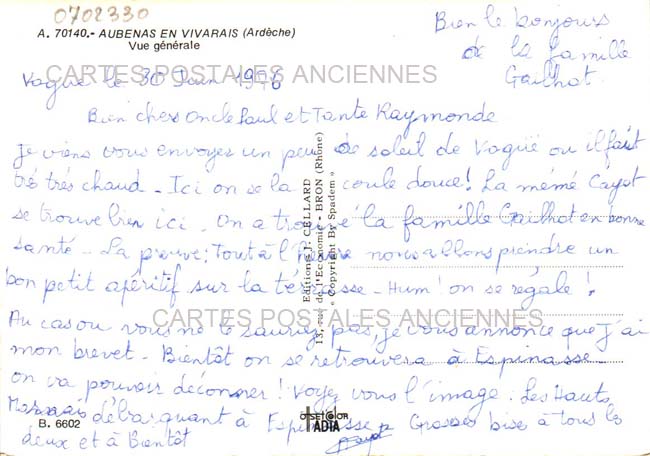 0702330
A. 70140.- AUBENAS EN VIVARAIS (Ardèche)
Vue générale
Bien le bonjour
de la famille
Gailhot.
Vogüé le 30 Juin 1976
CARTES POSTALES ANCIENNES
Bien chers Oncle Paul et Tante Raymonde
Je viens vous envoyer un peu de soleil de Vogüé ou il fait
trés trés chaud - Ici on se la coule douce! La mémé Cayot
se trouve bien ici. On a trouvé la famille Gailhot en bonne
santé - La preuve; Tout à l'heure nous allons prendre un
bon petit apéritif sur la terrasse - Hum! on se régale!
CARTES POSTALES ANCIENNES
Au cas ou vous ne le sauriez pas, je vous annonce que j'ai
mon brevet - Bientôt on se retrouvera à Espinasse -
on va pouvoir déconner! Voyez vous l'image. Les Hauts
débarquant à Espinasse Grosses bises à tous les
deux et à Bientôt
B. 6602
OFFSET COLOR
IADIA
Editions J. CELLARD
13, rue de l'Economie - BRON (Rhône)
« Copyright By Spadem »